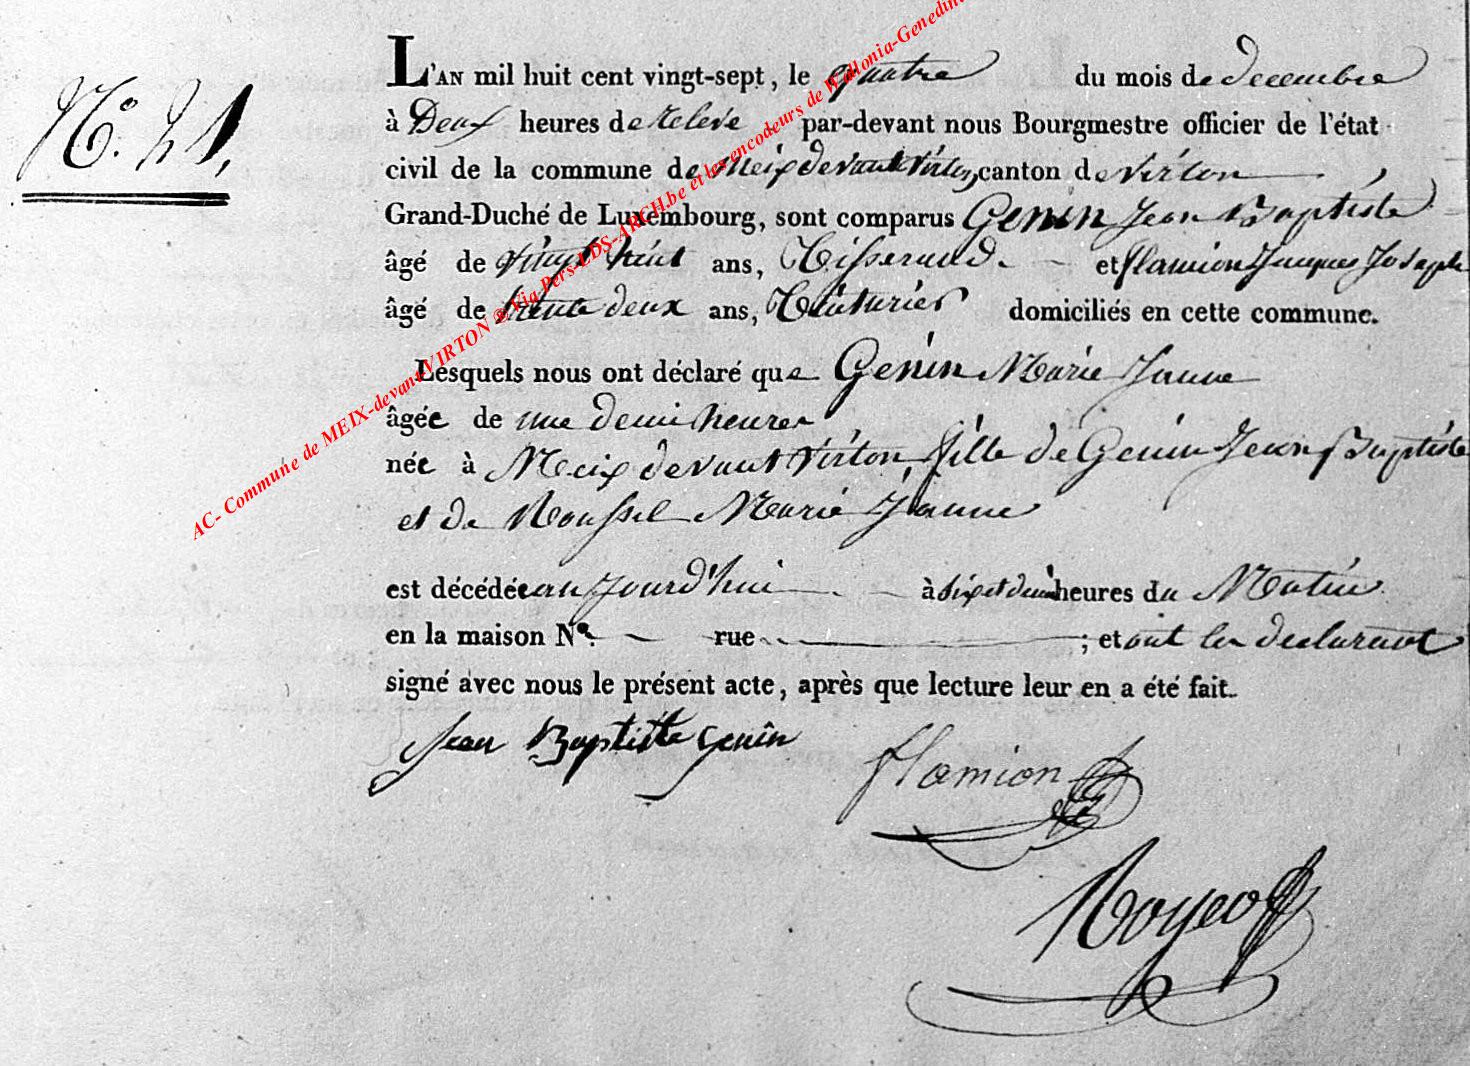 N.º 21,
L'AN mil huit cent vingt-sept, le quatre du mois de decembre
à Deux heures de Relevé par-devant nous Bourgmestre officier de l'état
civil de la commune de Meix devant Virton, canton de Virton
Grand-Duché de Luxembourg, sont comparus Genin Jean Baptiste
âgé de vingt huit ans, Tisserand et flamion Jacques Joseph
âgé de trente deux ans, Couturier domiciliés en cette commune.
Lesquels nous ont déclaré que Genin Marie Jeanne
âgée de une demi heure
née à Meix devant Virton, fille de Genin Jean Baptiste
et de Roussel Marie Jeanne
est décédée aujourd'hui à six et demi heures du Matin
en la maison N.º rue ; et ont les declarant
signé avec nous le présent acte, après que lecture leur en a été fait.
Jean Baptiste Genin
flamion
AC- Commune de MEIX-devant-VIRTON @ Via Pers-LDS-ARCH.be et les encodeurs de Wallonia-Genedin